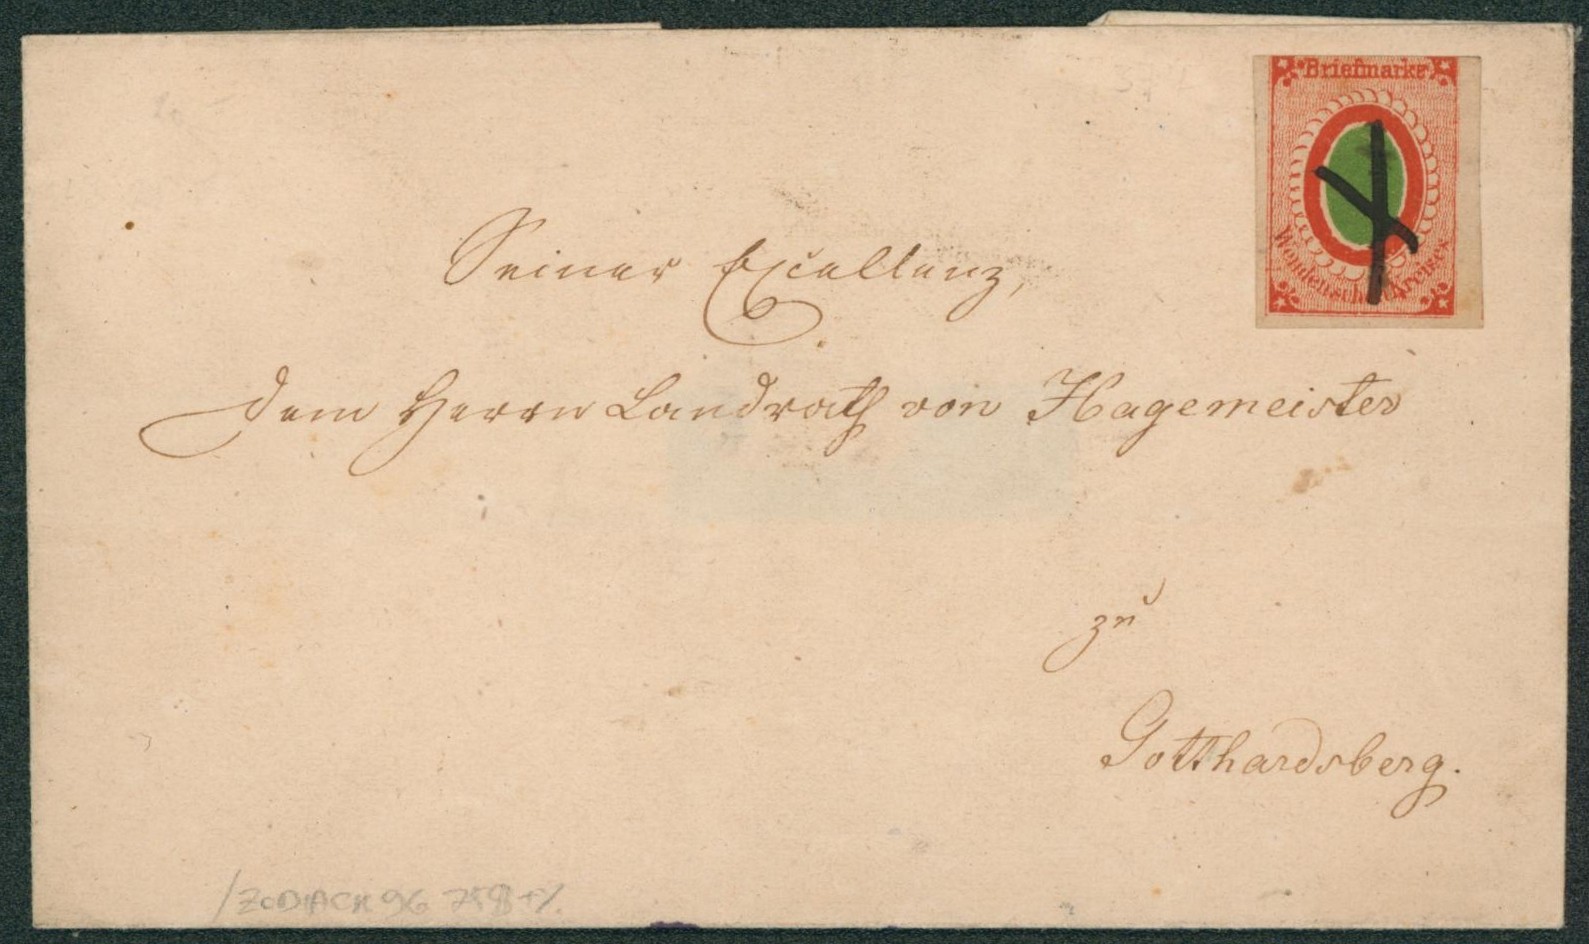 Briefmarke
Wendenschen Kreises
Seiner Excellenz,
dem Herrn Landrath von Hagemeister
zu
Gotthardsberg.
ZODIACK 96